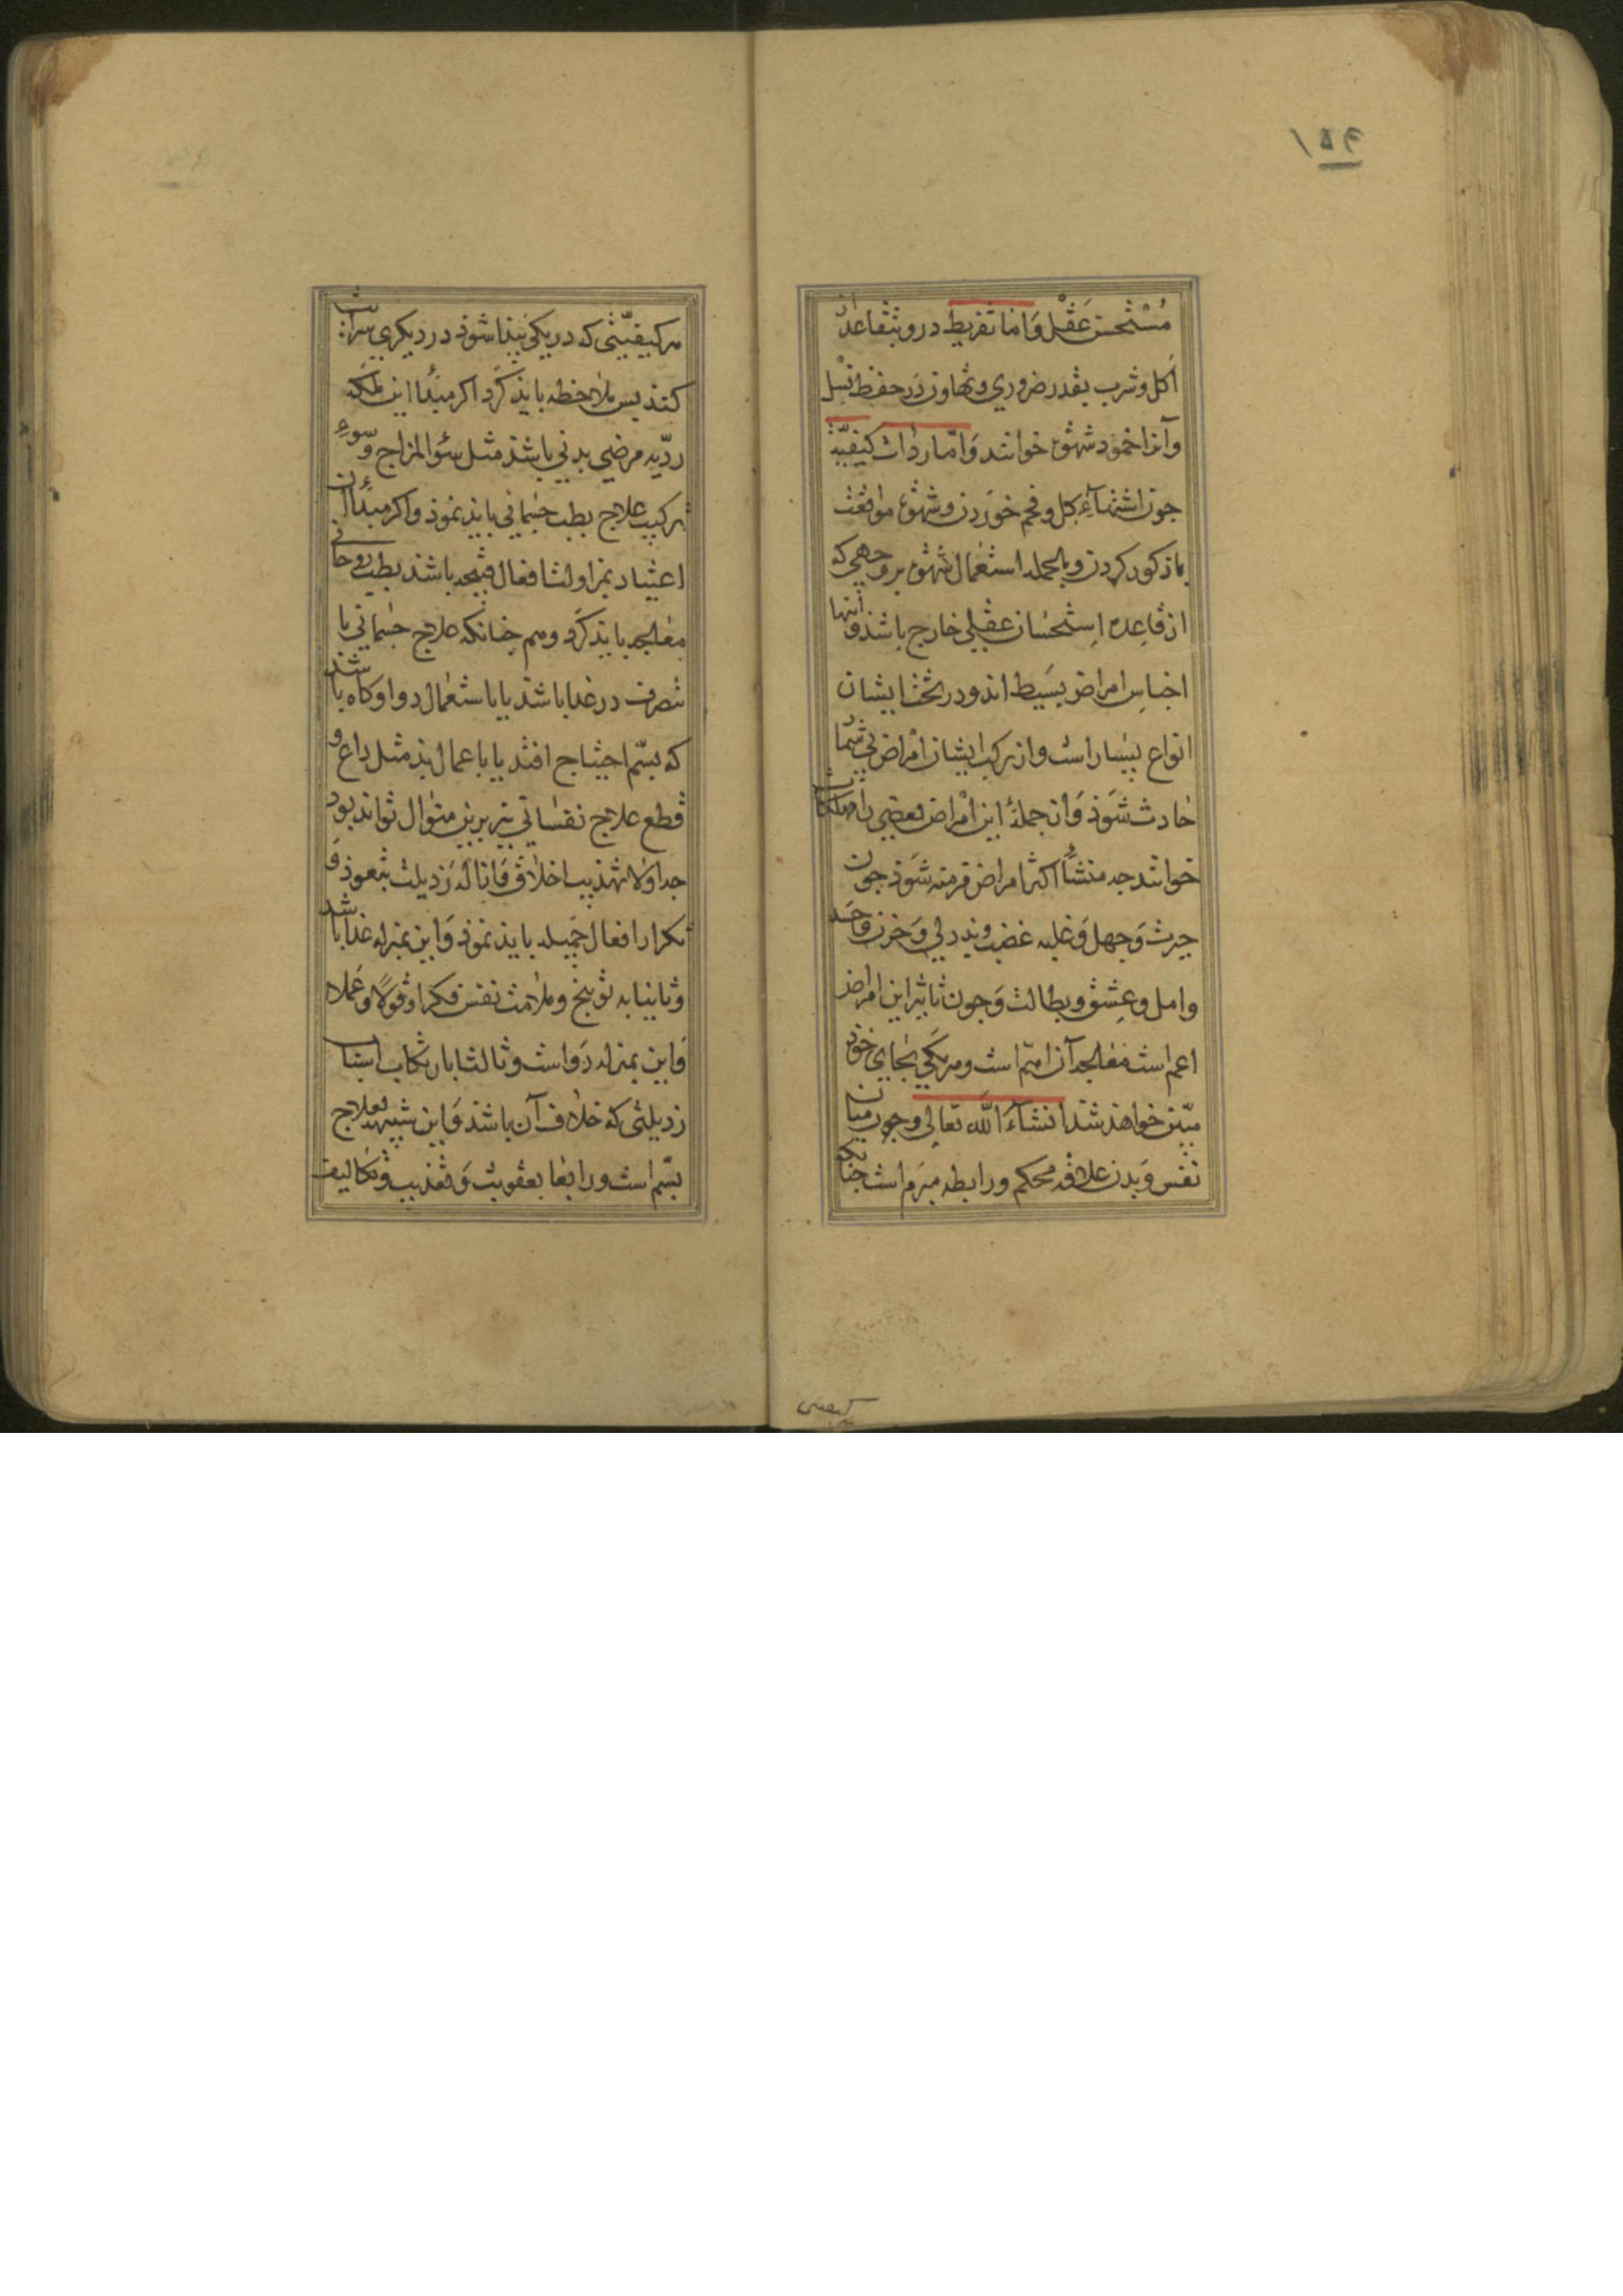 ۱۵۴
مُسْتحسن عَقْل وَاما تفریط درو بتقاعد از
اکل و شرب بقدر ضروری و تهاون دَر حفظ نسل
وآنرا خمود شهوة خوانند وَامّا رداءت کیفیّت
جون اشتهاءِ کل و فحم خوردن و شهوة مواقعت
بذکور کردن و بالجمله استعمال شهوة بر وجهی که
از قاعِده اِستحسان عقلی خارج باشذ و اینها
اجناسِ امراض بسَیط اند و در تحت ایشان
انواع بسیار است و از ترکیب ایشان امْراض بی شمار
حادث شَوَذ وَ از جملهٔ این امْراض بعضی را مهلکات
خوانند جه منشأ اکثر امراض مزمنه شَوَذ جون
حیرت وَ جهل وَ غلبه غضب و بددلی وَ حزن وَ حَسد
وامل و عِشق و بطالت وَ جون تاثیر این امراض
اعم است معالجه آن اهمّ است و هر یکی بجای خوذ
مبیّن خواهذ شذ انشاءَ اللّه تعالی و جون میان
نفس وَ بدن علاقه محکم و رابطه مبرم است جنانکه
کیفیتی
هر کیفیّتی که در یکی پیذا شوذ در دیکری سرایت
کنذ پس ملاحظه بایذ کرَد اکر مبدأ این ملکه
ردّیه مرضی بدنی باشذ مثل سُوء المزاج وَ سوءِ
ترکیب علاج بطب جسمانی بایذ نموذ واکر مبدأ آن
اعتیاد بمزاولت افعال قبیحه باشذ بطب روحانی
معالجه بایذ کرَد و هم جنانکه علاج جسمانی یا
بتصرف در غذا باشذ یا باستعمال دوا و کاه باشذ
که بسّم احتیاج افتد یا باعمال یذ مثل داغ و
قطع علاج نفسانی نیز برین منوال تواند بوذ
جه اولا تهذیب اخلاق وَ ازالهٔ رَذیلت بتعوذ وَ
تکرار افعال جمیله بایذ نموذ وَ این بمنزله غذا باشذ
وثانیا به توبیخ و ملامت نفس فکرا و قولًا و عَملا
وَ این بمنزله دَواست و ثالثا بارتکاب اسباب
رذیلتی که خلاف آن باشذ وَ این شبیهه بعلاج
بسّم است و رابعا بعقوبت وَ تعذیب و تکالیف